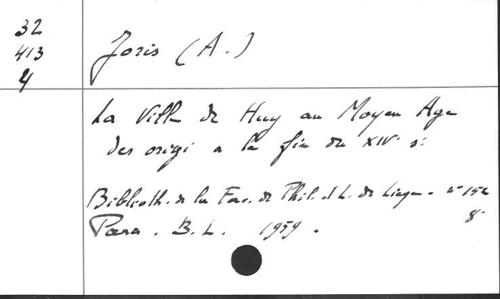 32
413
4
Joris (A.)
La Ville de Huy au Moyen Age
des origi a la fin du XIVe s.
Biblioth. de la Fac. de Phil. et L. de Liège. n° 152
Paris. B. L. 1959. 8°